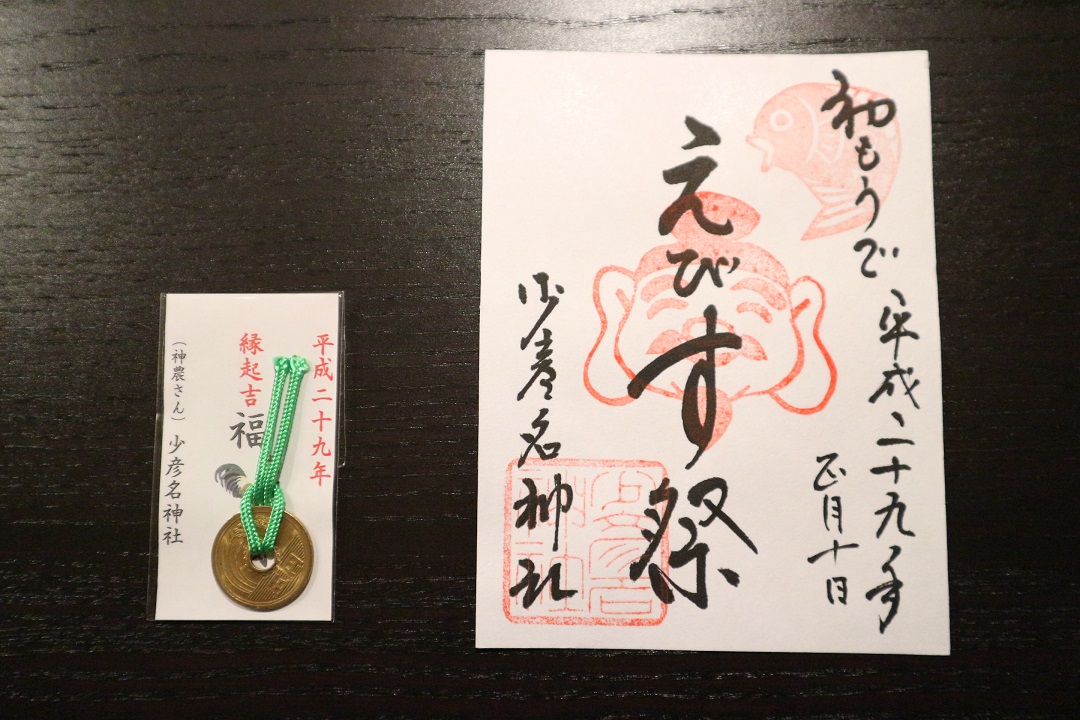 平成二十九年
縁起吉
福
（神農さん）少彦名神社
初もうで 平成二十九年
正月十日
えびす祭
少彦名神社
少彦名
神社